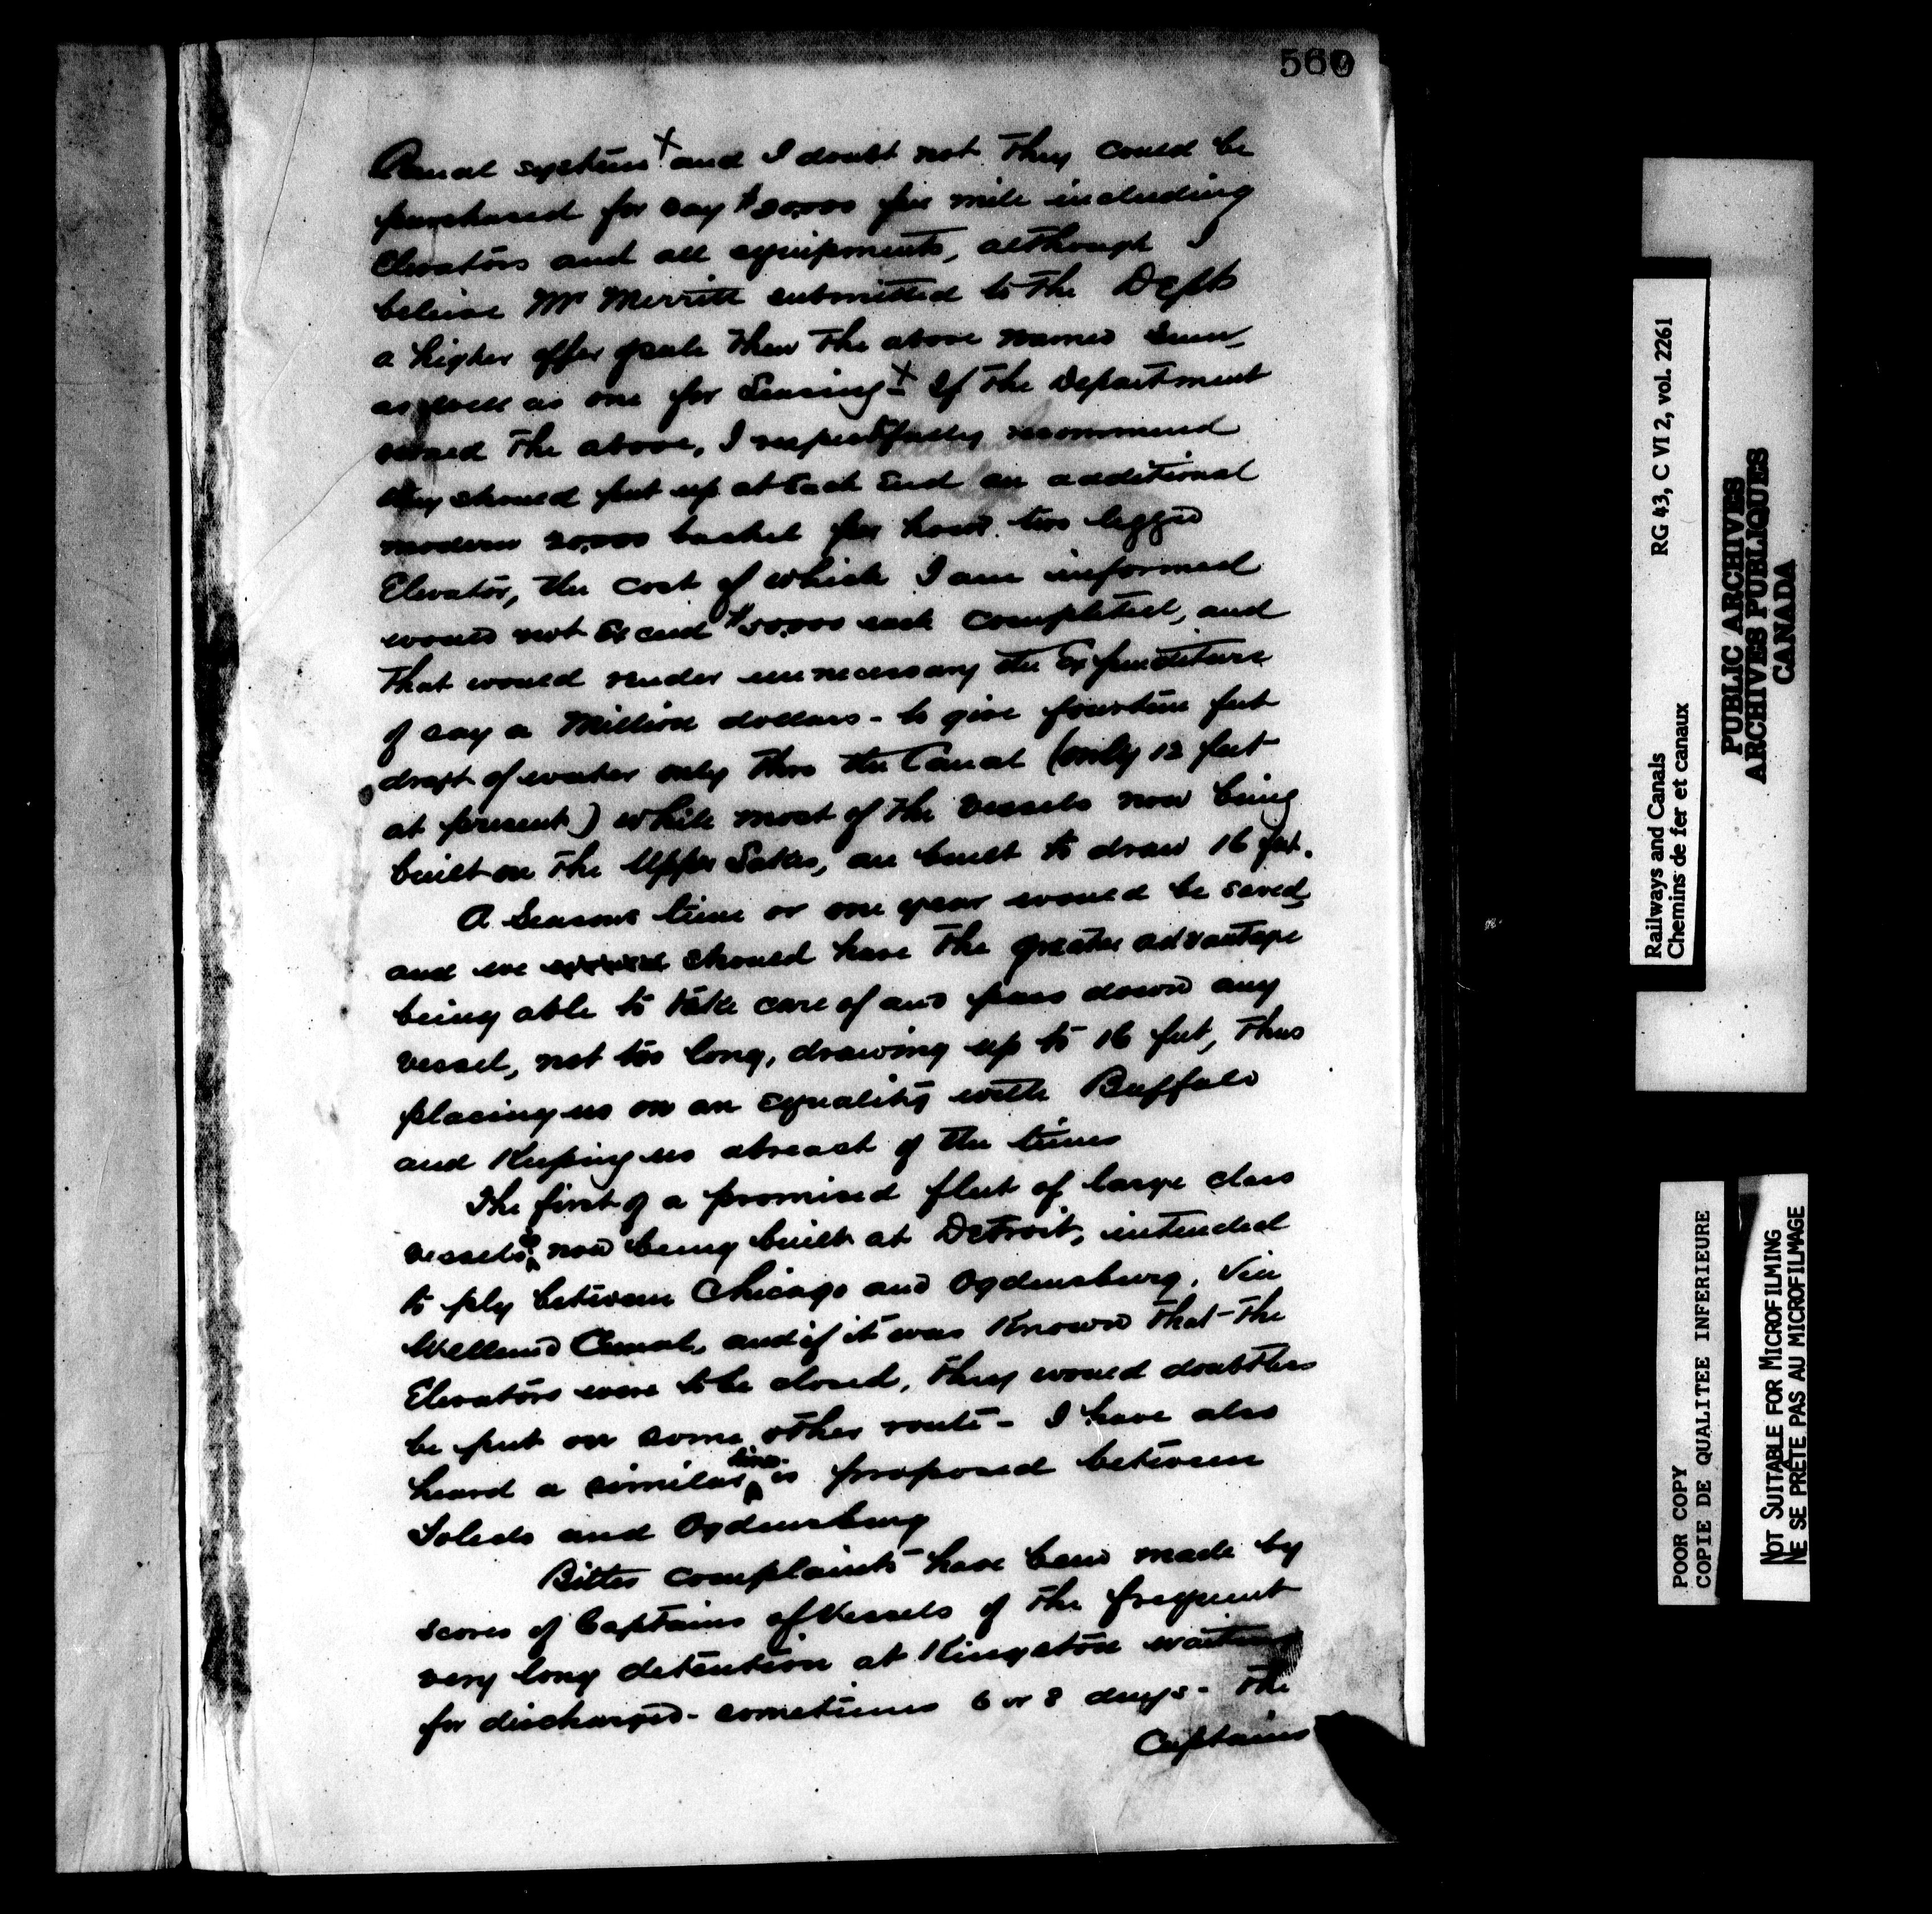 560
Canal system x and I doubt not they could be
purchased for say $20,000 per mile including
Elevators and all equipments, although I
believe Mr Merritt submitted to the Dept
a higher offer of sale then the above named sum
as well as one for leasing x If the Department
owned the above, I respectfully recommend
they should put up at each end an additional
modern 20,000 bushel per hour two legged
Elevator, the cost of which I am informed
would not Exceed $50,000 each completed, and
that would render unnecessary the Expenditure
of say a Million dollars - to give fourteen feet
draft of water only thro the Canal (only 12 feet
at present) while most of the vessels now being
built on the Upper Lakes, are built to draw 16 feet.
A Seasons time or one year would be saved
and we should have the greater advantage
being able to take care of and pass down any
vessel, not too long, drawing up to 16 feet, thus
placing us on an equality with Buffalo
and Keeping us abreast of the times
The first of a promised fleet of large class
vessels is now being built at Detroit, intended
to ply between Chicago and Ogdensburg, via
Welland Canal, and if it was Known that the
Elevators were to be closed, they would doubtless
be put on some other route - I have also
heard a similar line is proposed between
Toledo and Ogdensburg
Bitter complaints have been made by
scores of Captains of Vessels of the frequent
very long detention at Kingston waiting
for discharged - sometimes 6 or 8 days - The
Captains
Railways and Canals RG 43, C VI 2, vol. 2261
Chemins de fer et canaux
PUBLIC ARCHIVES
ARCHIVES PUBLIQUES
CANADA
POOR COPY
COPIE DE QUALITEE INFERIEURE
NOT SUITABLE FOR MICROFILMING
NE SE PRÊTE PAS AU MICROFILMAGE